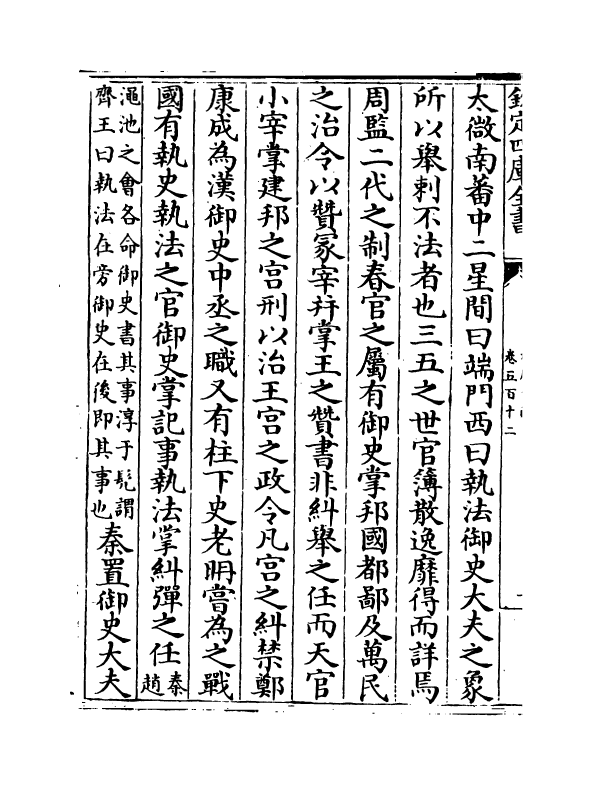 欽定四庫全書
卷五百十二
太微南蕃中二星間曰端門西曰執法御史大夫之象
所以舉刺不法者也三五之世官簿散逸靡得而詳焉
周監二代之制春官之屬有御史掌邦國都鄙及萬民
之治令以贊冢宰幷掌王之贊書非糾舉之任而天官
小宰掌建邦之宫刑以治王宫之政令凡宫之糾禁鄭
康成為漢御史中丞之職又有柱下史老耼嘗為之戰
國有執史執法之官御史掌記事執法掌糾彈之任秦趙
澠池之會各命御史書其事淳于髠謂
齊王曰執法在旁御史在後即其事也秦置御史大夫